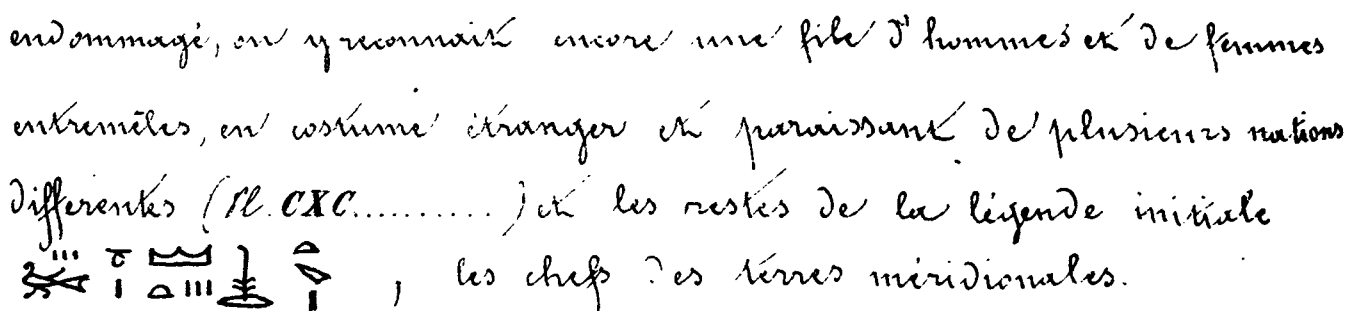 endommagé, on y reconnait encore une file d'hommes et de femmes
entremêles, en costume étranger et paraissant de plusieurs nations
differentes (Pl. CXC..........) et les restes de la légende initiale
, les chefs des terres méridionales.